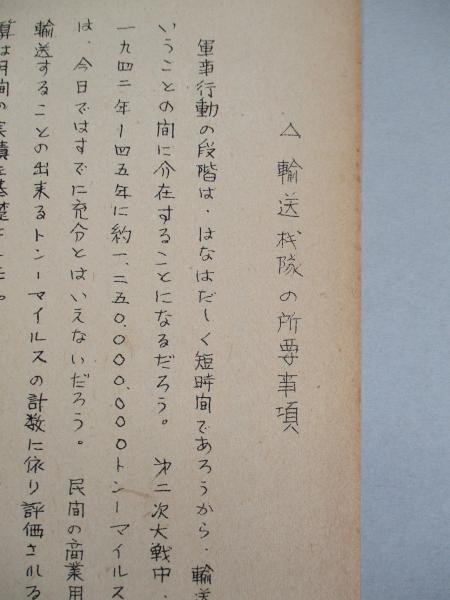 △ 輸送機隊の所要事項
軍事行動の段階は、はなはだしく短時間であろうから、輸送
いうことの間に介在することになるだろう。 第二次大戦中、
一九四二年ー四五年に約一、二五〇、〇〇〇、〇〇〇トンーマイルス
は、今日ではすでに充分とはいえないだろう。 民間の商業用
輸送することの出来るトンーマイルスの計数に依り評価される
算は月間の実績を基礎と